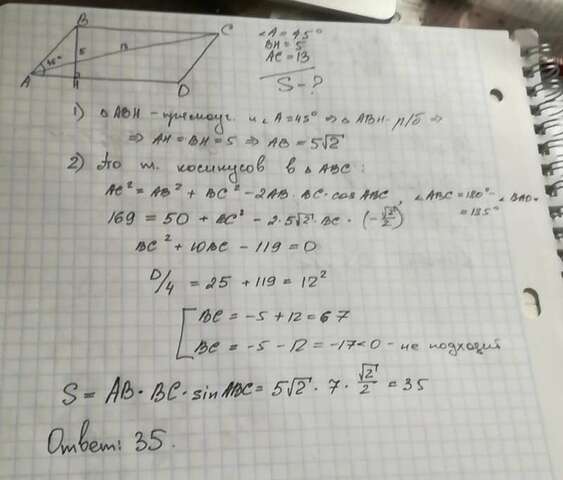 B
C
5
13
45°
A
H
D
∠A = 45°
BH = 5
AC = 13
S - ?
1) △ABH - прямоуг. и ∠A = 45° ⇒ △ABH - р/б ⇒
⇒ AH = BH = 5 ⇒ AB = 5√2
2) По т. косинусов в △ABC:
AC² = AB² + BC² - 2AB · BC · cos ABC, ∠ABC = 180° - ∠BAD =
169 = 50 + BC² - 2 · 5√2 · BC · (-√2/2) = 135°
BC² + 10BC - 119 = 0
D/4 = 25 + 119 = 12²
BC = -5 + 12 = 7
BC = -5 - 12 = -17 < 0 - не подходит
S = AB · BC · sin ABC = 5√2 · 7 · √2/2 = 35
Ответ: 35.